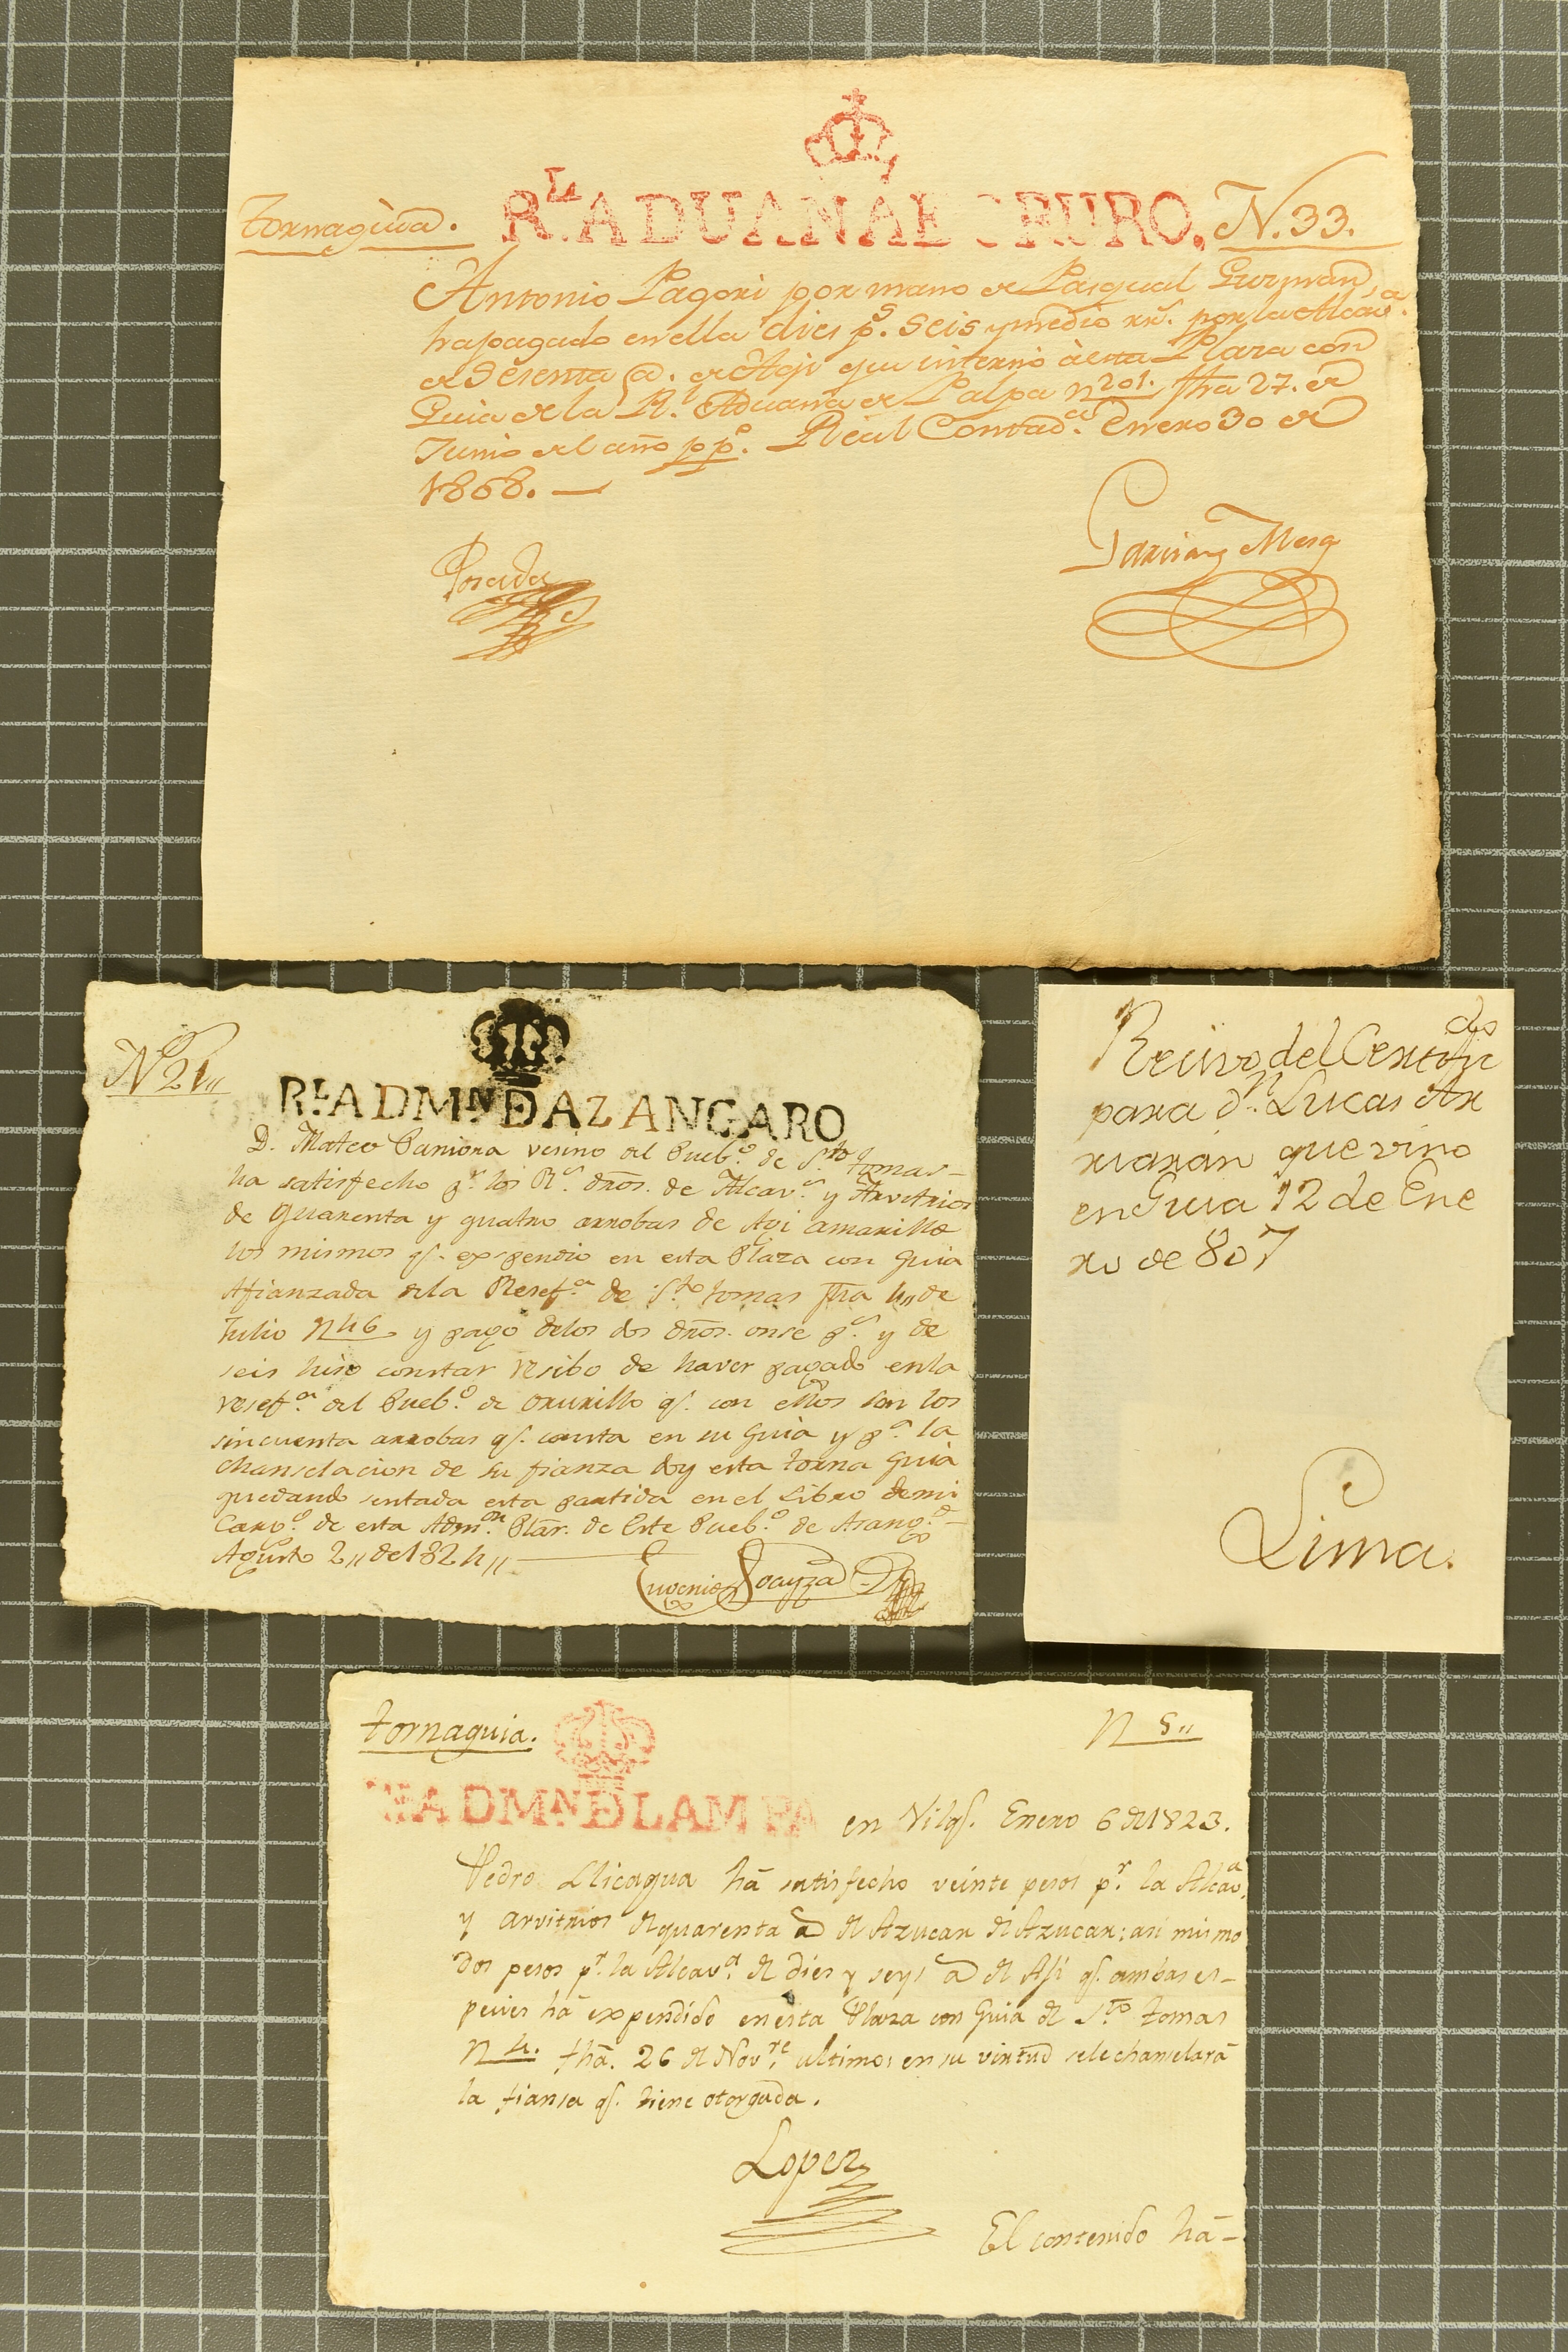 Tornaguia.
RL. ADUANA D ORURO.
N. 33.
Antonio Pagori por mano de Pasqual Guzman,
ha pagado en ella dies ps. seis y medio rrs. por la Alcava.
de Sesenta @. de Agi que internó à esta Plaza con
Guia de la Rl. Aduana de Palpa n 201. fha 27. de
Junio del año pp°. Real Contadca. Enero 30 de
1808.—
Posada
Mesa
N° 21,,
RL ADMN. D AZANGARO
D. Mateo vesino del Pueb°. de Sto. Tomas—
ha satisfecho ps. los Rs. dños. de Alcavs. y Arvitrios
de quarenta y quatro arrobas de Agi amarillo
los mismos qe. expendio en esta Plaza con Guia
Afianzada dela Resefa. de Sto. Tomas fha 4,, de
Julio N 46 y pago delos dos dños. onse ps. y de
seis hiso constar resibo de haver pagado enla
resefa. del Pueb°. de Orurillo qe. con ellos son los
sincuenta arrobas qe. consta en su Guia y pa. la
chanselacion de su fianza doy esta torna Guia
quedando sentada esta partida en el Libro de mi
Cargo. de esta Admon. de Este Pueb°. de Asang°.—
Agusto 2,, de 1824,,
Euvenio Loayza
Recivo del Certificdo
para dn. Lucas Ar
riaran que vino
en Guia 12 de Ene
ro de 807
Lima.
tornaguia.
N 5,,
RL ADMN. D LAMPA
en Vilqe. Enero 6 de 1823.
Pedro Llicagua hā satisfecho veinte pesos pr. la Alcava.
y arvitrios de quarenta @ de Azucar de Azucar; asi mismo
dos pesos pr. la Alcava. de dies y seys @ de Aji qe. ambas es-
pecies hā expendido en esta Plaza con Guia de Sto. Tomas
N 4. fhā. 26 de Novre. ultimo; en su virtud sele chanselarā
la fiansa qe. tiene otorgada.
Lopez
El contenido hā—